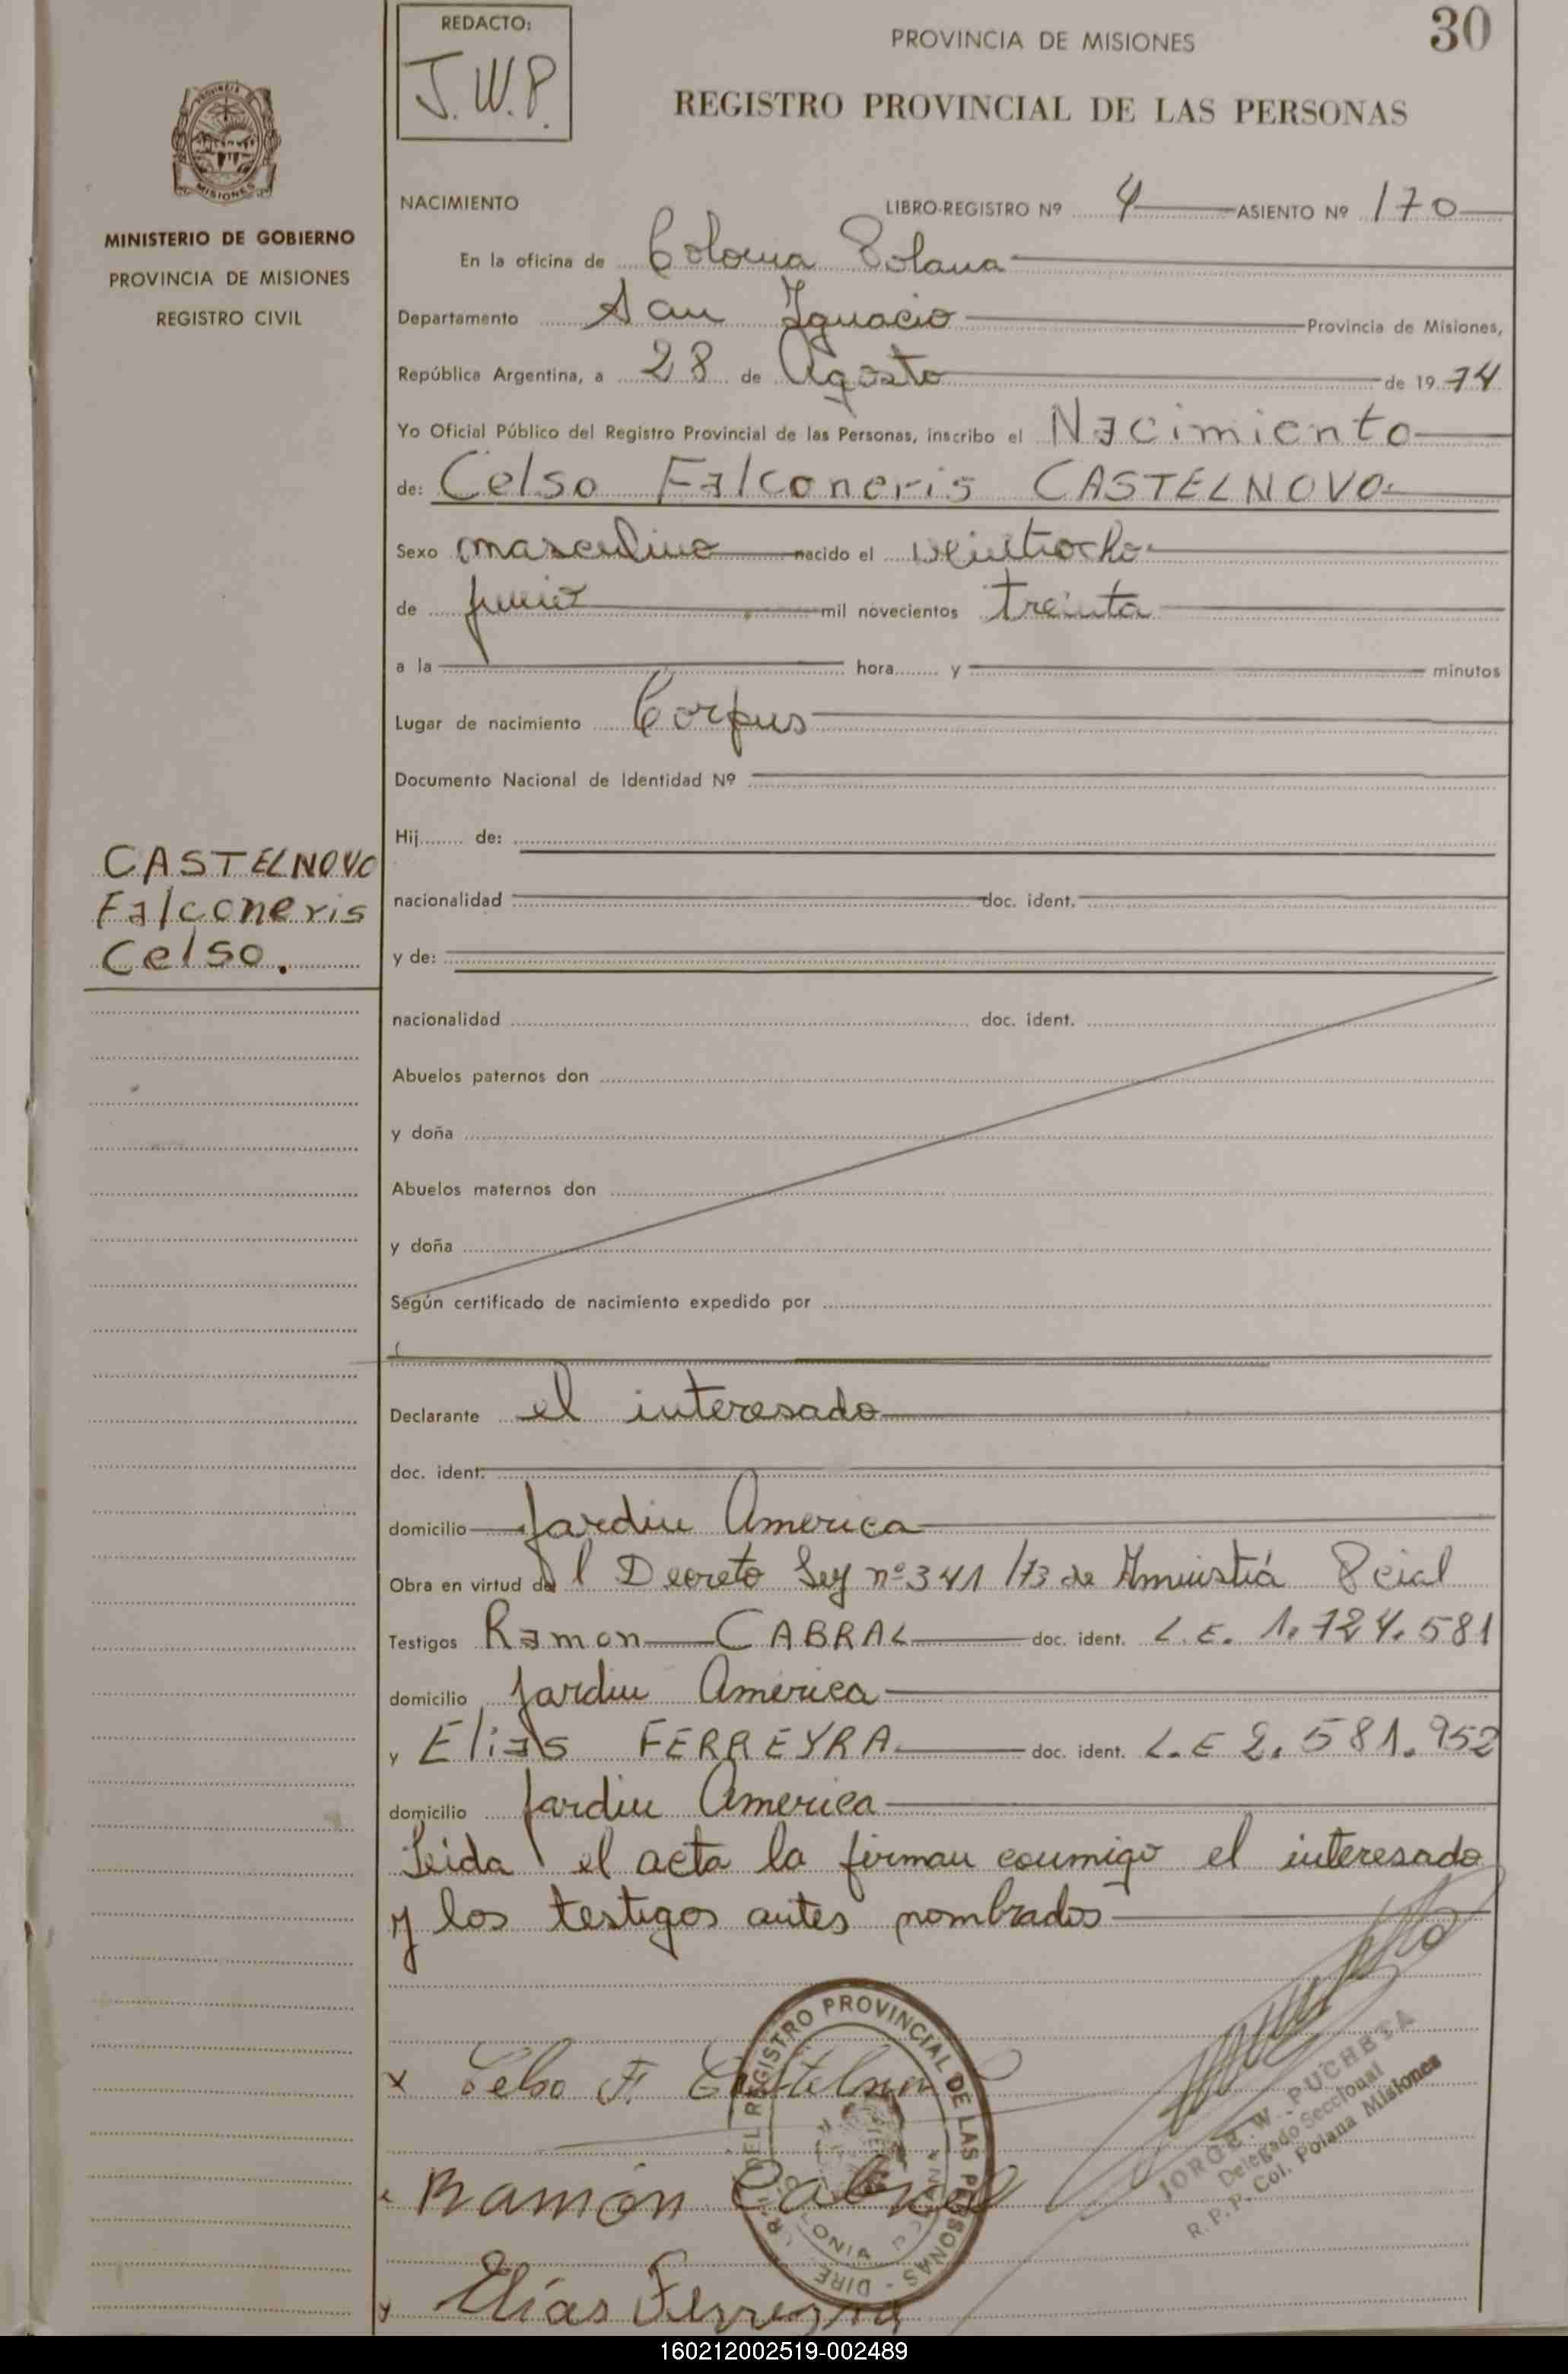 REDACTO:
J.W.P.
PROVINCIA DE MISIONES
30
REGISTRO PROVINCIAL DE LAS PERSONAS
MISIONES
MINISTERIO DE GOBIERNO
PROVINCIA DE MISIONES
REGISTRO CIVIL
NACIMIENTO LIBRO-REGISTRO Nº 4 ASIENTO Nº 170
En la oficina de Colonia Polana
Departamento San Ignacio Provincia de Misiones,
República Argentina, a 28 de Agosto de 1974
Yo Oficial Público del Registro Provincial de las Personas, inscribo el Nacimiento
de: Celso Falconeris CASTELNOVO
Sexo masculino nacido el veintiocho
de junio mil novecientos treinta
a la hora y minutos
Lugar de nacimiento Corpus
Documento Nacional de Identidad Nº
Hij de:
CASTELNOVO
Falconeris
Celso.
nacionalidad doc. ident.
y de:
nacionalidad doc. ident.
Abuelos paternos don
y doña
Abuelos maternos don
y doña
Según certificado de nacimiento expedido por
Declarante el interesado
doc. ident.
domicilio Jardin America
Obra en virtud del Decreto Ley nº 341/73 de Amnistiá Pcial
Testigos Ramon CABRAL doc. ident. L.E. 1.724.581
domicilio Jardin América
y Elias FERREYRA doc. ident. L.E 2.581.952
domicilio Jardin America
Leida el acta la firman conmigo el interesado
y los testigos antes nombrados
x Celso F. Castelnovo
Ramón Cabral
Elías Ferreyra
REGISTRO PROVINCIAL DE LAS PERSONAS - DIRE
COLONIA
JORGE W. PUCHETA
Delegado Seccional
R. P. P. Col. Polana Misiones
160212002519-002489